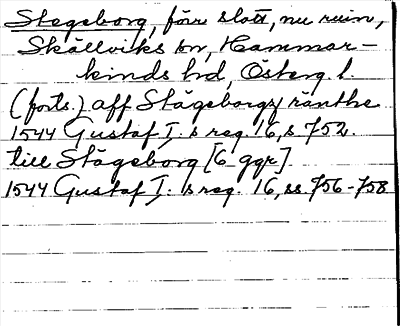 Stegeborg, förr slott, nu ruin,
Skällviks sn, Hammar-
kinds hd, Österg. l.
(forts.) aff Stägeborgz ränthe
1544 Gustaf I:s reg. 16, s. 752.
till Stägeborg [6 ggr]
1544 Gustaf I:s reg. 16, ss. 756-758